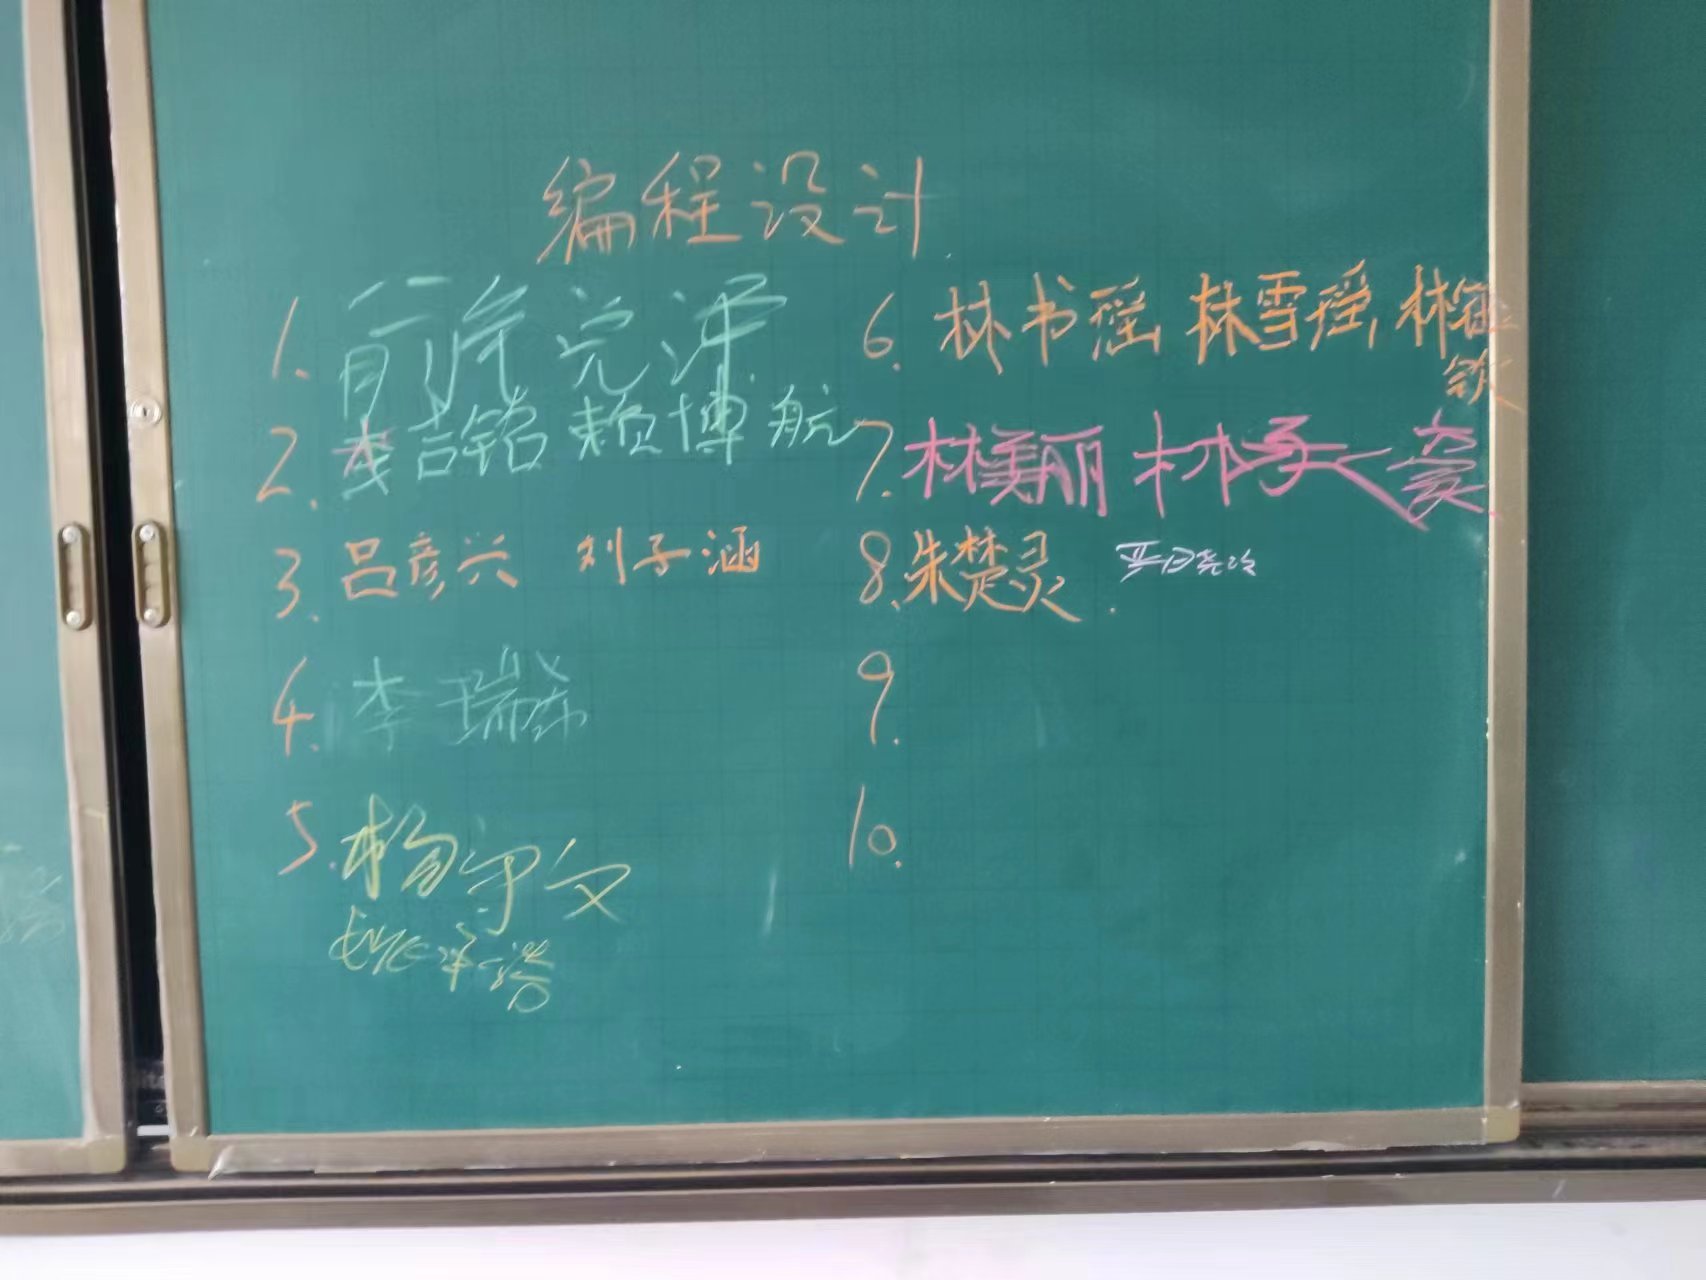 编程设计
1.
2. 李吉铭 赖博航
3. 吕彦兴 刘子涵
4. 李瑞希
5. 杨宇文
6. 林书瑶, 林雪瑶, 林
钦
7. 林美丽 林承豪
8. 朱楚灵
9.
10.